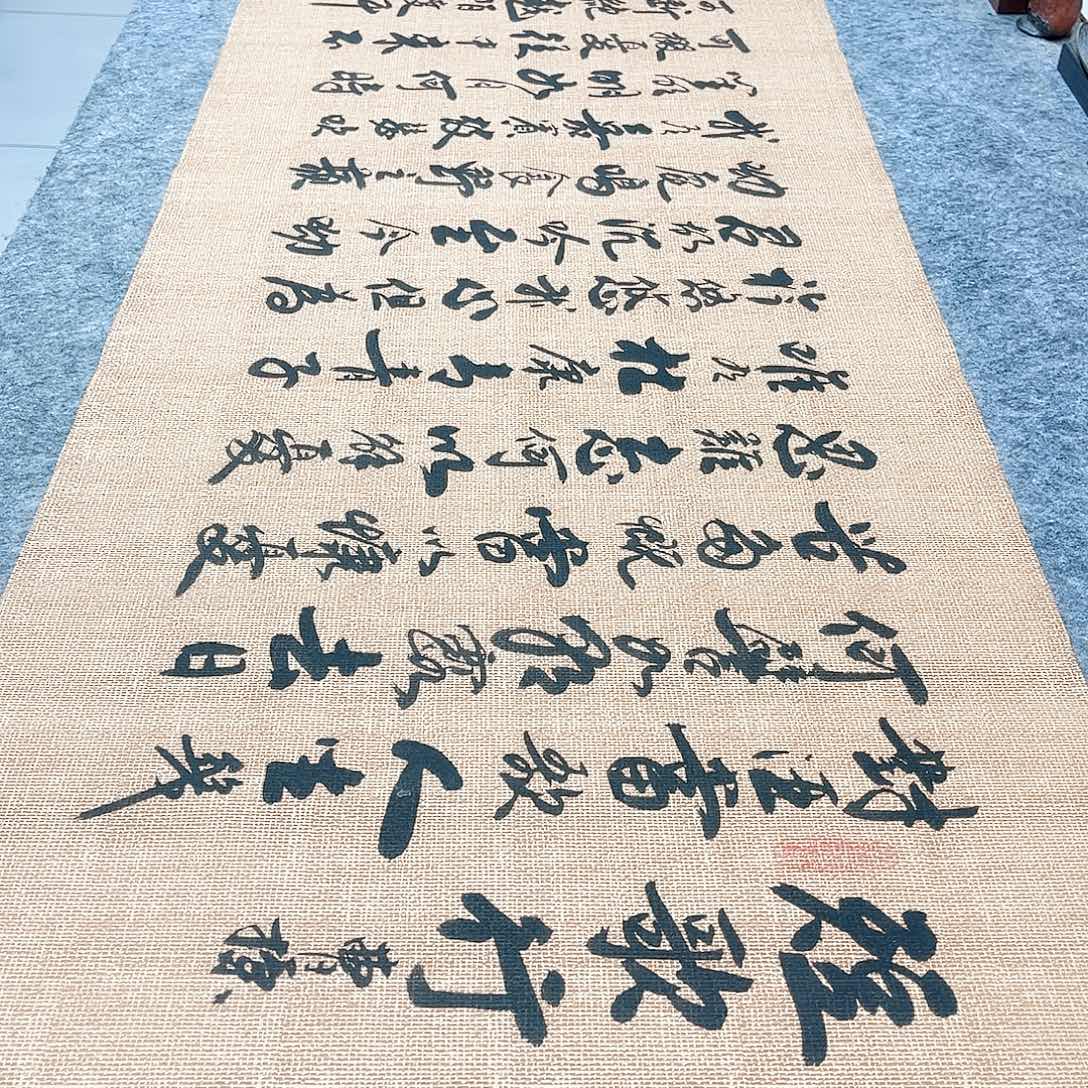 短歌行 曹操
對酒當歌人生幾
何譬如朝露去日
苦多慨當以慷憂
思難忘何以解憂
唯有杜康青青子
衿悠悠我心但為
君故沉吟至今呦
呦鹿鳴食野之蘋
我有嘉賓鼓瑟吹
笙明明如月何時
可掇憂從中來不
可斷絕越陌度阡